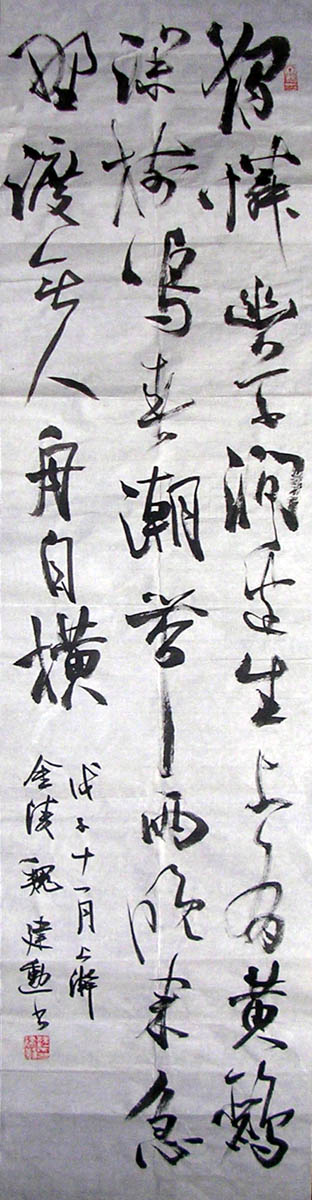 獨憐幽草澗邊生上有黃鸝
深樹鳴春潮帶雨晚來急
野渡無人舟自橫
戊子十一月上澣
金陵魏勳書